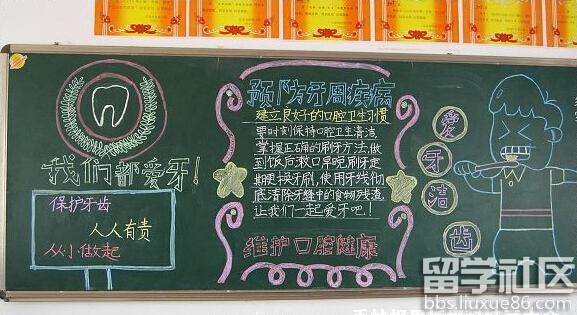 我们都爱牙!
保护牙齿
人人有责
从小做起
预防牙周疾病
建立良好的口腔卫生习惯
要时刻保持口腔卫生清洁,
掌握正确的刷牙方法,做
到饭后漱口早晚刷牙定
期更换牙刷,使用牙线彻
底清除牙缝中的食物残渣,
让我们一起爱牙吧!
维护口腔健康
爱
牙
洁
齿
留学社区
bbs.liuxue86.com